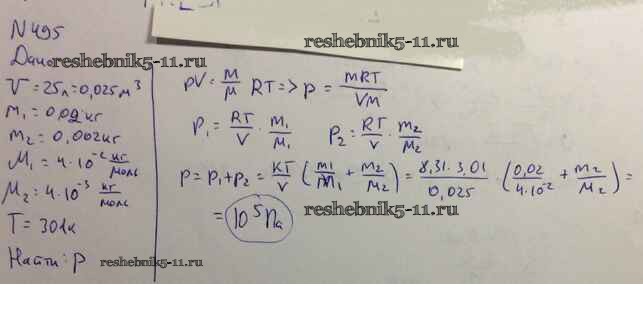 N495
reshebnik5-11.ru
Дано
reshebnik5-11.ru
V = 25л = 0,025 м³
m₁ = 0,02 кг
m₂ = 0,002 кг
M₁ = 4·10⁻² кг/моль
M₂ = 4·10⁻³ кг/моль
T = 301к
Найти: p
pV = m/M RT => p = mRT/VM
p₁ = RT/V · m₁/M₁ p₂ = RT/V · m₂/M₂
p = p₁ + p₂ = KT/V (m₁/M₁ + m₂/M₂) = 8,31·3,01/0,025 · (0,02/4·10⁻² + m₂/M₂) =
= 10⁵ Па
reshebnik5-11.ru
reshebnik5-11.ru